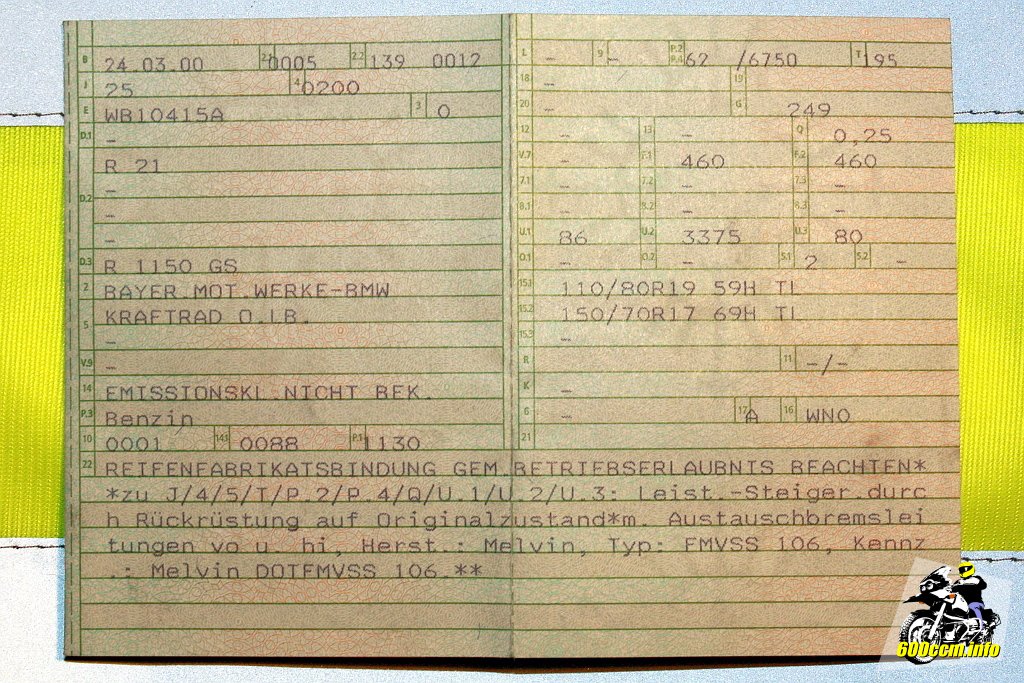 B 24.03.00 2.1 0005 2.2 139 0012
J 25 4 0200
E WB10415A 3 0
D.1 –
R 21
D.2 –
–
–
D.3 R 1150 GS
2 BAYER.MOT.WERKE-BMW
KRAFTRAD O.LB.
5 –
V.9 –
14 EMISSIONSKL.NICHT BEK.
P.3 Benzin
10 0001 14.1 0088 P.1 1130
L – 9 – P.2 P.4 62 /6750 T 195
18 – 19
20 – G 249
12 – 13 – Q 0,25
V.7 – F.1 460 F.2 460
7.1 – 7.2 – 7.3 –
8.1 – 8.2 – 8.3 –
U.1 86 U.2 3375 U.3 80
O.1 – O.2 – S.1 2 S.2 –
15.1 110/80R19 59H TL
15.2 150/70R17 69H TL
15.3 –
R 11 -/-
K –
6 – 17 A 16 WNO
21
22 REIFENFABRIKATSBINDUNG GEM.BETRIEBSERLAUBNIS BEACHTEN*
*zu J/4/5/T/P.2/P.4/Q/U.1/U.2/U.3: Leist.-Steiger.durc
h Rückrüstung auf Originalzustand*m. Austauschbremslei
tungen vo u. hi, Herst.: Melvin, Typ: FMVSS 106, Kennz
.: Melvin DOTFMVSS 106.**
600ccm.info